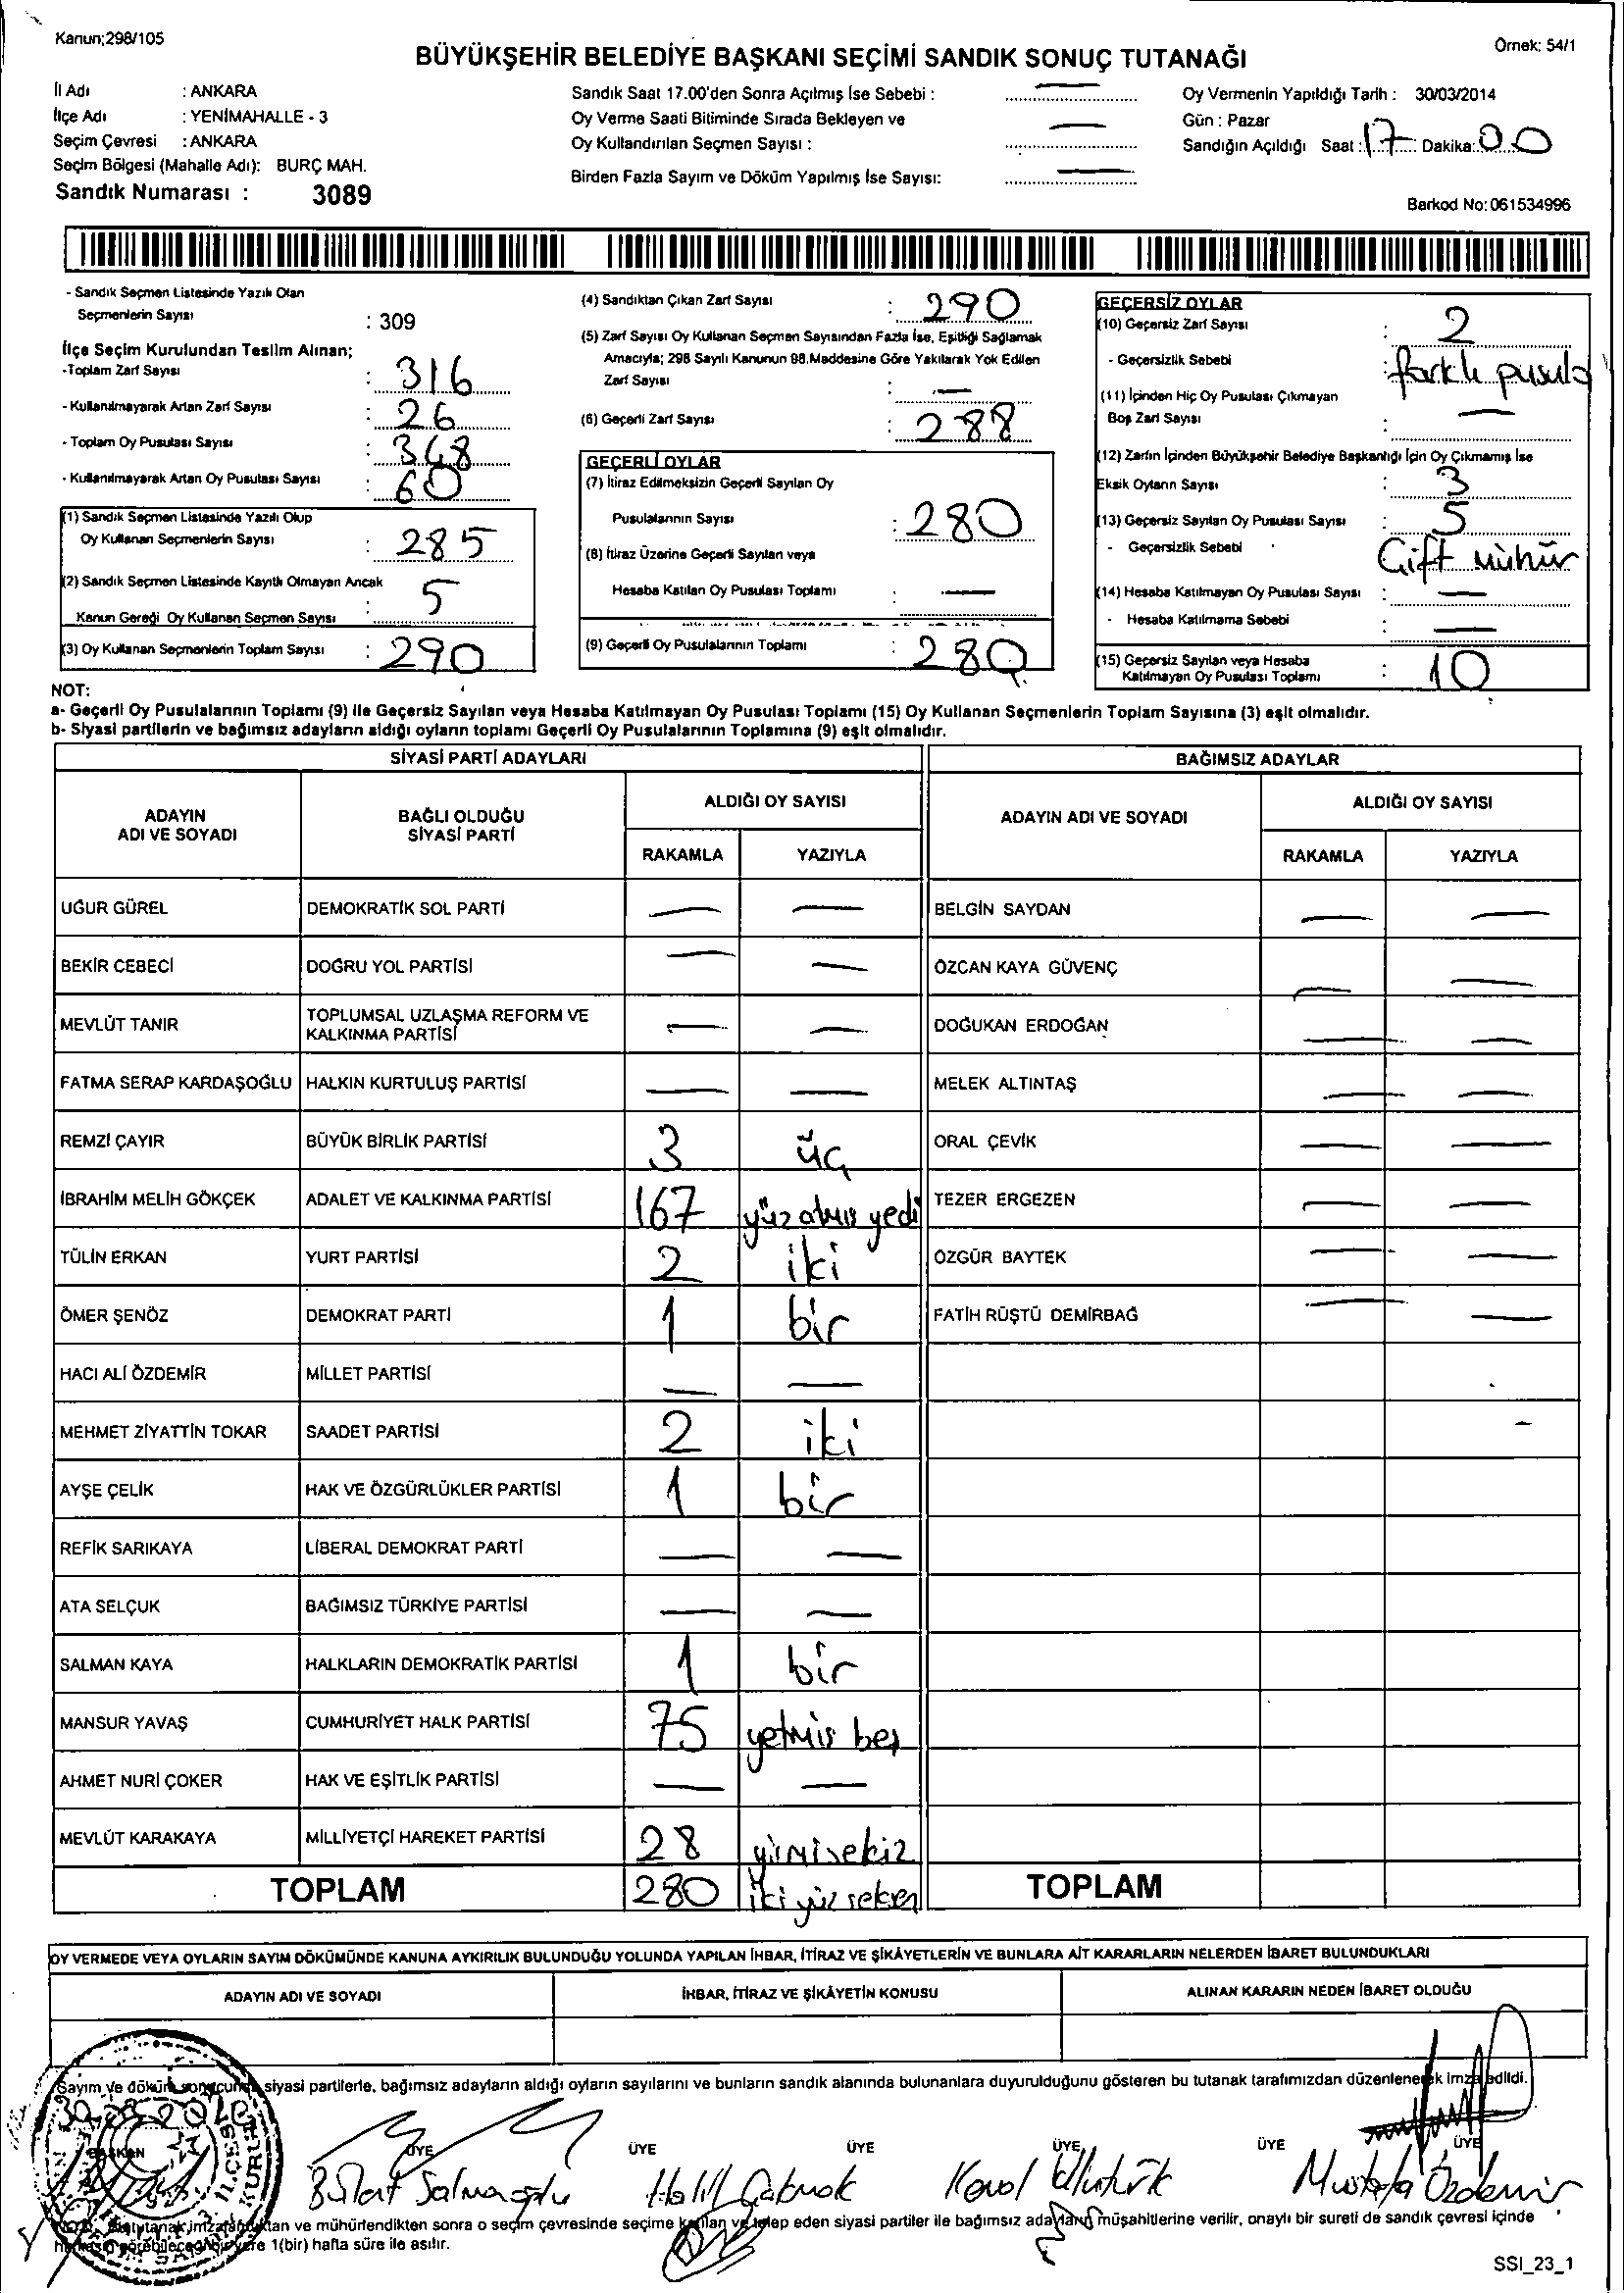 Kanun;298/105
Örnek: 54/1
BÜYÜKŞEHİR BELEDİYE BAŞKANI SEÇİMİ SANDIK SONUÇ TUTANAĞI
İl Adı : ANKARA
İlçe Adı : YENİMAHALLE - 3
Seçim Çevresi : ANKARA
Seçim Bölgesi (Mahalle Adı): BURÇ MAH.
Sandık Numarası : 3089
Sandık Saat 17.00'den Sonra Açılmış İse Sebebi : —
Oy Verme Saati Bitiminde Sırada Bekleyen ve
Oy Kullandırılan Seçmen Sayısı : —
Birden Fazla Sayım ve Döküm Yapılmış İse Sayısı: —
Oy Vermenin Yapıldığı Tarih : 30/03/2014
Gün : Pazar
Sandığın Açıldığı Saat : 17 Dakika: 00
Barkod No: 061534996
- Sandık Seçmen Listesinde Yazılı Olan
Seçmenlerin Sayısı : 309
İlçe Seçim Kurulundan Teslim Alınan;
-Toplam Zarf Sayısı : 316
- Kullanılmayarak Artan Zarf Sayısı : 26
- Toplam Oy Pusulası Sayısı : 348
- Kullanılmayarak Artan Oy Pusulası Sayısı : 60
(1) Sandık Seçmen Listesinde Yazılı Olup
Oy Kullanan Seçmenlerin Sayısı : 285
(2) Sandık Seçmen Listesinde Kayıtlı Olmayan Ancak
Kanun Gereği Oy Kullanan Seçmen Sayısı : 5
(3) Oy Kullanan Seçmenlerin Toplam Sayısı : 290
(4) Sandıktan Çıkan Zarf Sayısı : 290
(5) Zarf Sayısı Oy Kullanan Seçmen Sayısından Fazla İse, Eşitliği Sağlamak
Amacıyla; 298 Sayılı Kanunun 98.Maddesine Göre Yakılarak Yok Edilen
Zarf Sayısı : —
(6) Geçerli Zarf Sayısı : 288
GEÇERLİ OYLAR
(7) İtiraz Edilmeksizin Geçerli Sayılan Oy
Pusulalarının Sayısı : 280
(8) İtiraz Üzerine Geçerli Sayılan veya
Hesaba Katılan Oy Pusulası Toplamı : —
(9) Geçerli Oy Pusulalarının Toplamı : 280
GEÇERSİZ OYLAR
(10) Geçersiz Zarf Sayısı : 2
- Geçersizlik Sebebi : farklı pusula
(11) İçinden Hiç Oy Pusulası Çıkmayan
Boş Zarf Sayısı : —
(12) Zarfın İçinden Büyükşehir Belediye Başkanlığı İçin Oy Çıkmamış İse
Eksik Oyların Sayısı : 3
(13) Geçersiz Sayılan Oy Pusulası Sayısı : 5
- Geçersizlik Sebebi : Çift mühür
(14) Hesaba Katılmayan Oy Pusulası Sayısı : —
- Hesaba Katılmama Sebebi —
(15) Geçersiz Sayılan veya Hesaba
Katılmayan Oy Pusulası Toplamı : 10
NOT:
a- Geçerli Oy Pusulalarının Toplamı (9) ile Geçersiz Sayılan veya Hesaba Katılmayan Oy Pusulası Toplamı (15) Oy Kullanan Seçmenlerin Toplam Sayısına (3) eşit olmalıdır.
b- Siyasi partilerin ve bağımsız adayların aldığı oyların toplamı Geçerli Oy Pusulalarının Toplamına (9) eşit olmalıdır.
SİYASİ PARTİ ADAYLARI BAĞIMSIZ ADAYLAR
ADAYIN ADI VE SOYADI
BAĞLI OLDUĞU SİYASİ PARTİ
ALDIĞI OY SAYISI
RAKAMLA YAZIYLA
ADAYIN ADI VE SOYADI
ALDIĞI OY SAYISI
RAKAMLA YAZIYLA
UĞUR GÜREL DEMOKRATİK SOL PARTİ — — BELGİN SAYDAN — —
BEKİR CEBECİ DOĞRU YOL PARTİSİ — — ÖZCAN KAYA GÜVENÇ — —
MEVLÜT TANIR TOPLUMSAL UZLAŞMA REFORM VE KALKINMA PARTİSİ — — DOĞUKAN ERDOĞAN — —
FATMA SERAP KARDAŞOĞLU HALKIN KURTULUŞ PARTİSİ — — MELEK ALTINTAŞ — —
REMZİ ÇAYIR BÜYÜK BİRLİK PARTİSİ 3 üç ORAL ÇEVİK — —
İBRAHİM MELİH GÖKÇEK ADALET VE KALKINMA PARTİSİ 167 yüzatmış yedi TEZER ERGEZEN — —
TÜLİN ERKAN YURT PARTİSİ 2 iki ÖZGÜR BAYTEK — —
ÖMER ŞENÖZ DEMOKRAT PARTİ 1 bir FATİH RÜŞTÜ DEMİRBAĞ — —
HACI ALİ ÖZDEMİR MİLLET PARTİSİ — —
MEHMET ZİYATTİN TOKAR SAADET PARTİSİ 2 iki
AYŞE ÇELİK HAK VE ÖZGÜRLÜKLER PARTİSİ 1 bir
REFİK SARIKAYA LİBERAL DEMOKRAT PARTİ — —
ATA SELÇUK BAĞIMSIZ TÜRKİYE PARTİSİ — —
SALMAN KAYA HALKLARIN DEMOKRATİK PARTİSİ 1 bir
MANSUR YAVAŞ CUMHURİYET HALK PARTİSİ 75 yetmiş beş
AHMET NURİ ÇOKER HAK VE EŞİTLİK PARTİSİ — —
MEVLÜT KARAKAYA MİLLİYETÇİ HAREKET PARTİSİ 28 yirmisekiz
TOPLAM 280 iki yüz seksen TOPLAM
OY VERMEDE VEYA OYLARIN SAYIM DÖKÜMÜNDE KANUNA AYKIRILIK BULUNDUĞU YOLUNDA YAPILAN İHBAR, İTİRAZ VE ŞİKÂYETLERİN VE BUNLARA AİT KARARLARIN NELERDEN İBARET BULUNDUKLARI
ADAYIN ADI VE SOYADI İHBAR, İTİRAZ VE ŞİKÂYETİN KONUSU ALINAN KARARIN NEDEN İBARET OLDUĞU
Sayım ve döküm sonucunda siyasi partilerle, bağımsız adayların aldığı oyların sayılarını ve bunların sandık alanında bulunanlara duyurulduğunu gösteren bu tutanak tarafımızdan düzenlenerek imza edildi.
BAŞKAN ÜYE ÜYE ÜYE ÜYE ÜYE ÜYE
Halil Kemal Mustafa Özdemir
tutanak imzalandıktan ve mühürlendikten sonra o seçim çevresinde seçime katılan ve talep eden siyasi partiler ile bağımsız adayların müşahitlerine verilir, onaylı bir sureti de sandık çevresi içinde
herkesin görebileceği bir yere 1(bir) hafta süre ile asılır.
SSI_23_1